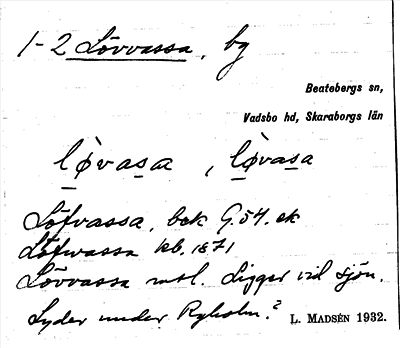 1-2 Lövvassa, by
Beatebergs sn,
Vadsbo hd, Skaraborgs län
lø̀vasa, lø̀vasa
Löfvassa, bek G.54. ek
Löfwassa kb. 1871
Lövvassa mtl. Ligger vid sjön.
Lyder under Ryholm.?
L. MADSÉN 1932.